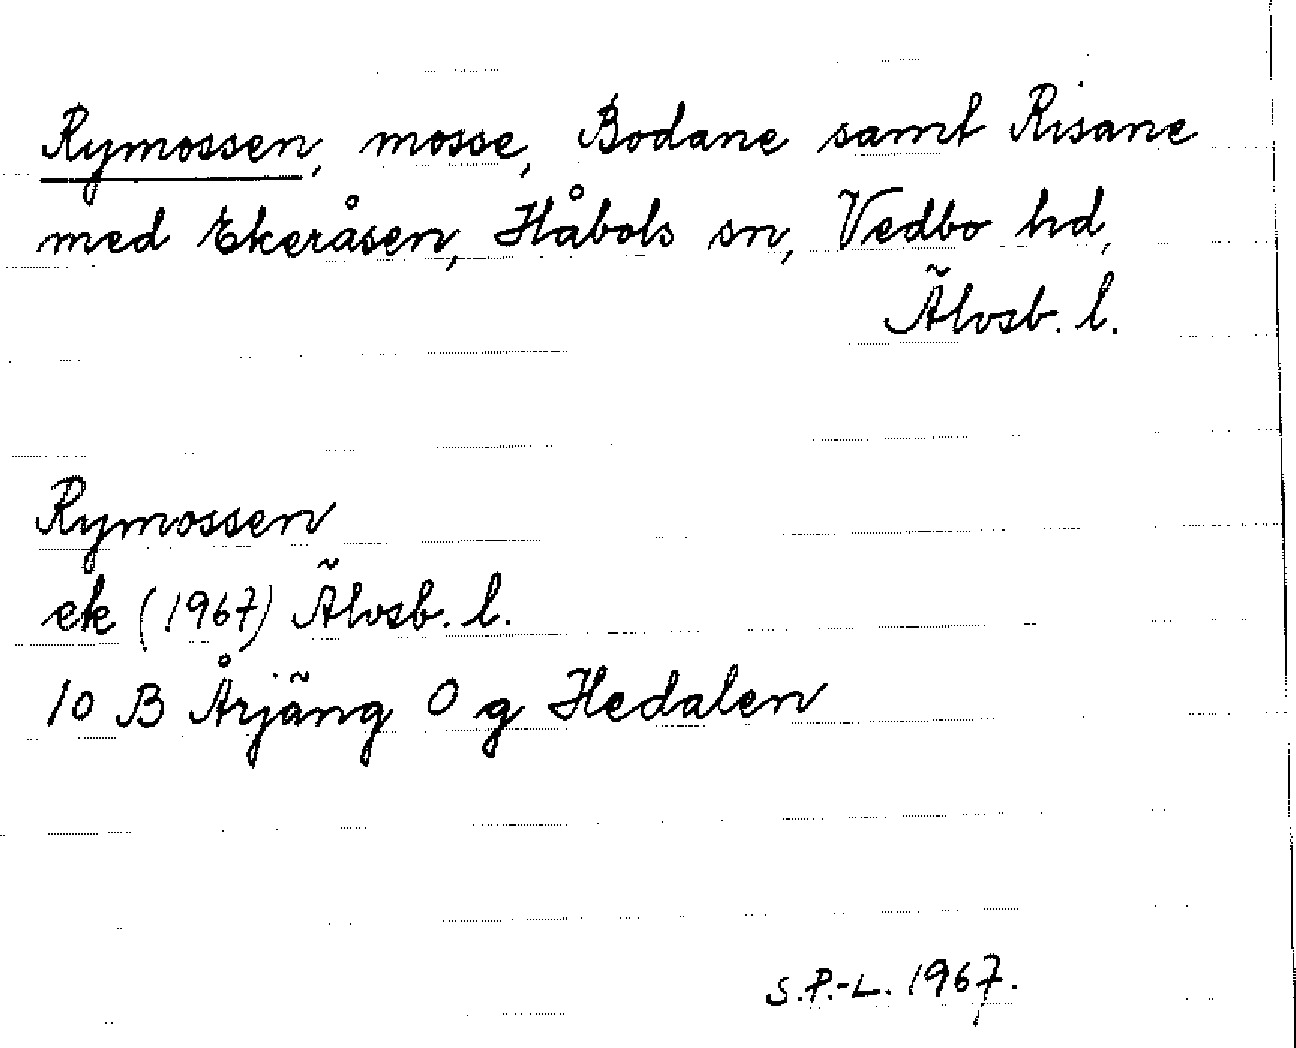 Rymossen, mosse, Bodane samt Risane
med Ekeråsen, Håbols sn, Vedbo hd,
Älvsb. l.
Rymossen
ek (1967) Älvsb. l.
10 B Årjäng 0 g Hedalen
S.P.-L. 1967.